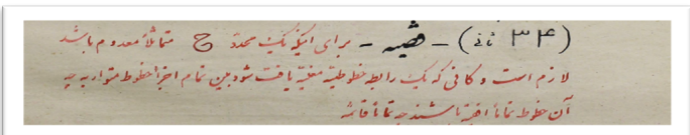 (۳۴ ثانی) - قضیه - برای اینکه یک محدد ج متماثلاً معدوم باشد
لازم است و کافی که یک رابطه خطوطیه معینه یافت شود بین تمام اجزأ خطوط متوازیه
آن خطوط تماماً باشند تماماً قائمه